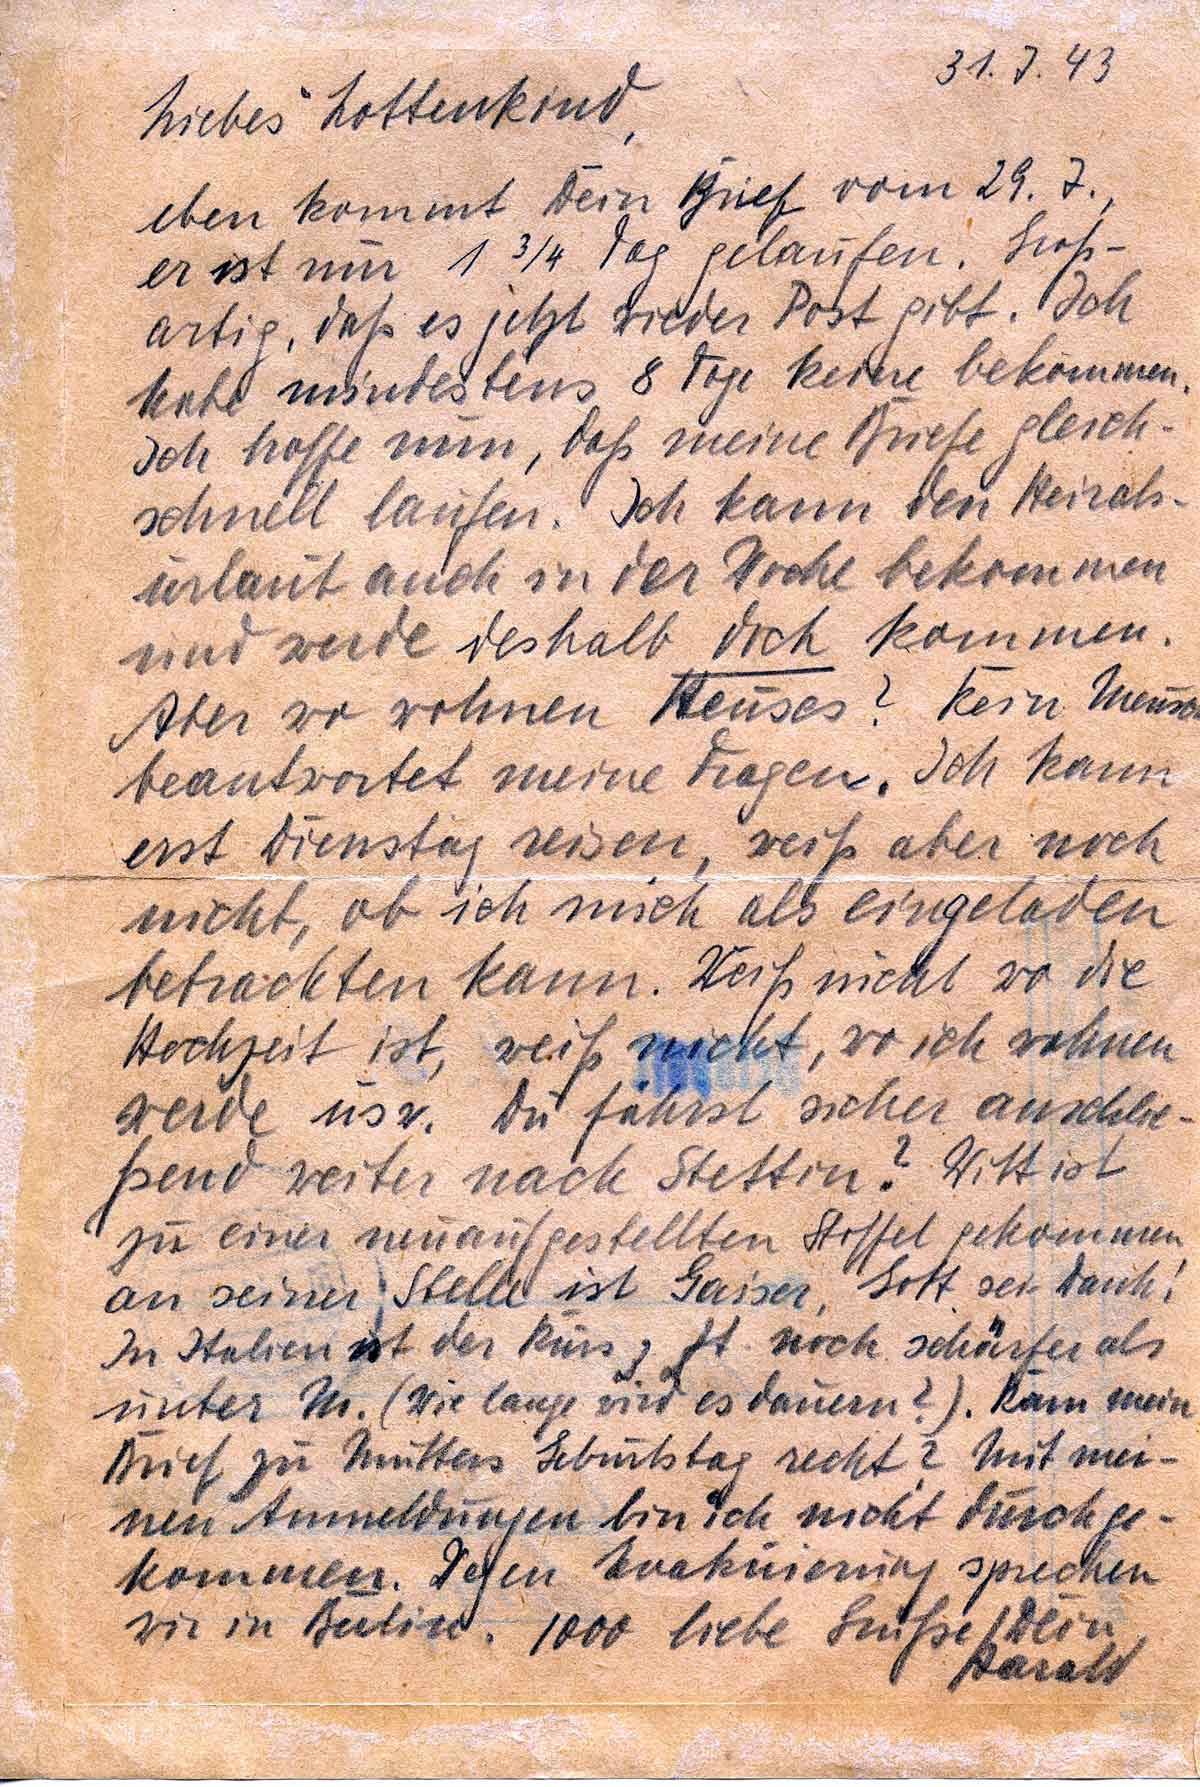 31. 7. 43
Liebes Lottenkind,
eben kommt Dein Brief vom 29. 7.,
er ist nur 1 3/4 Tag gelaufen. Groß-
artig, daß es jetzt wieder Post gibt. Ich
habe mindestens 8 Tage keine bekommen.
Ich hoffe nun, daß meine Briefe gleich-
schnell laufen. Ich kann den Heirats-
urlaub auch in der Woche bekommen
und werde deshalb doch kommen.
Aber wo wohnen Heuses? Kein Mensch
beantwortet meine Fragen. Ich kann
erst Dienstag reisen, weiß aber noch
nicht, ob ich mich als eingeladen
betrachten kann. Weiß nicht wo die
Hochzeit ist, weiß nicht, wo ich wohnen
werde usw. Du fährst sicher anschlie-
ßend weiter nach Stettin? Witt ist
zu einer neuaufgestellten Staffel gekommen,
an seiner Stelle ist Gaiser, Gott sei Dank!
In Italien ist der Kurs z. Zt. noch schärfer als
unter M. (Wie lange wird es dauern?). Kam mein
Brief zu Mutters Geburtstag recht? Mit mei-
nen Anmeldungen bin ich nicht durchge-
kommen. Wegen Evakuierung sprechen
wir in Berlin. 1000 liebe Grüße! Dein
Harald